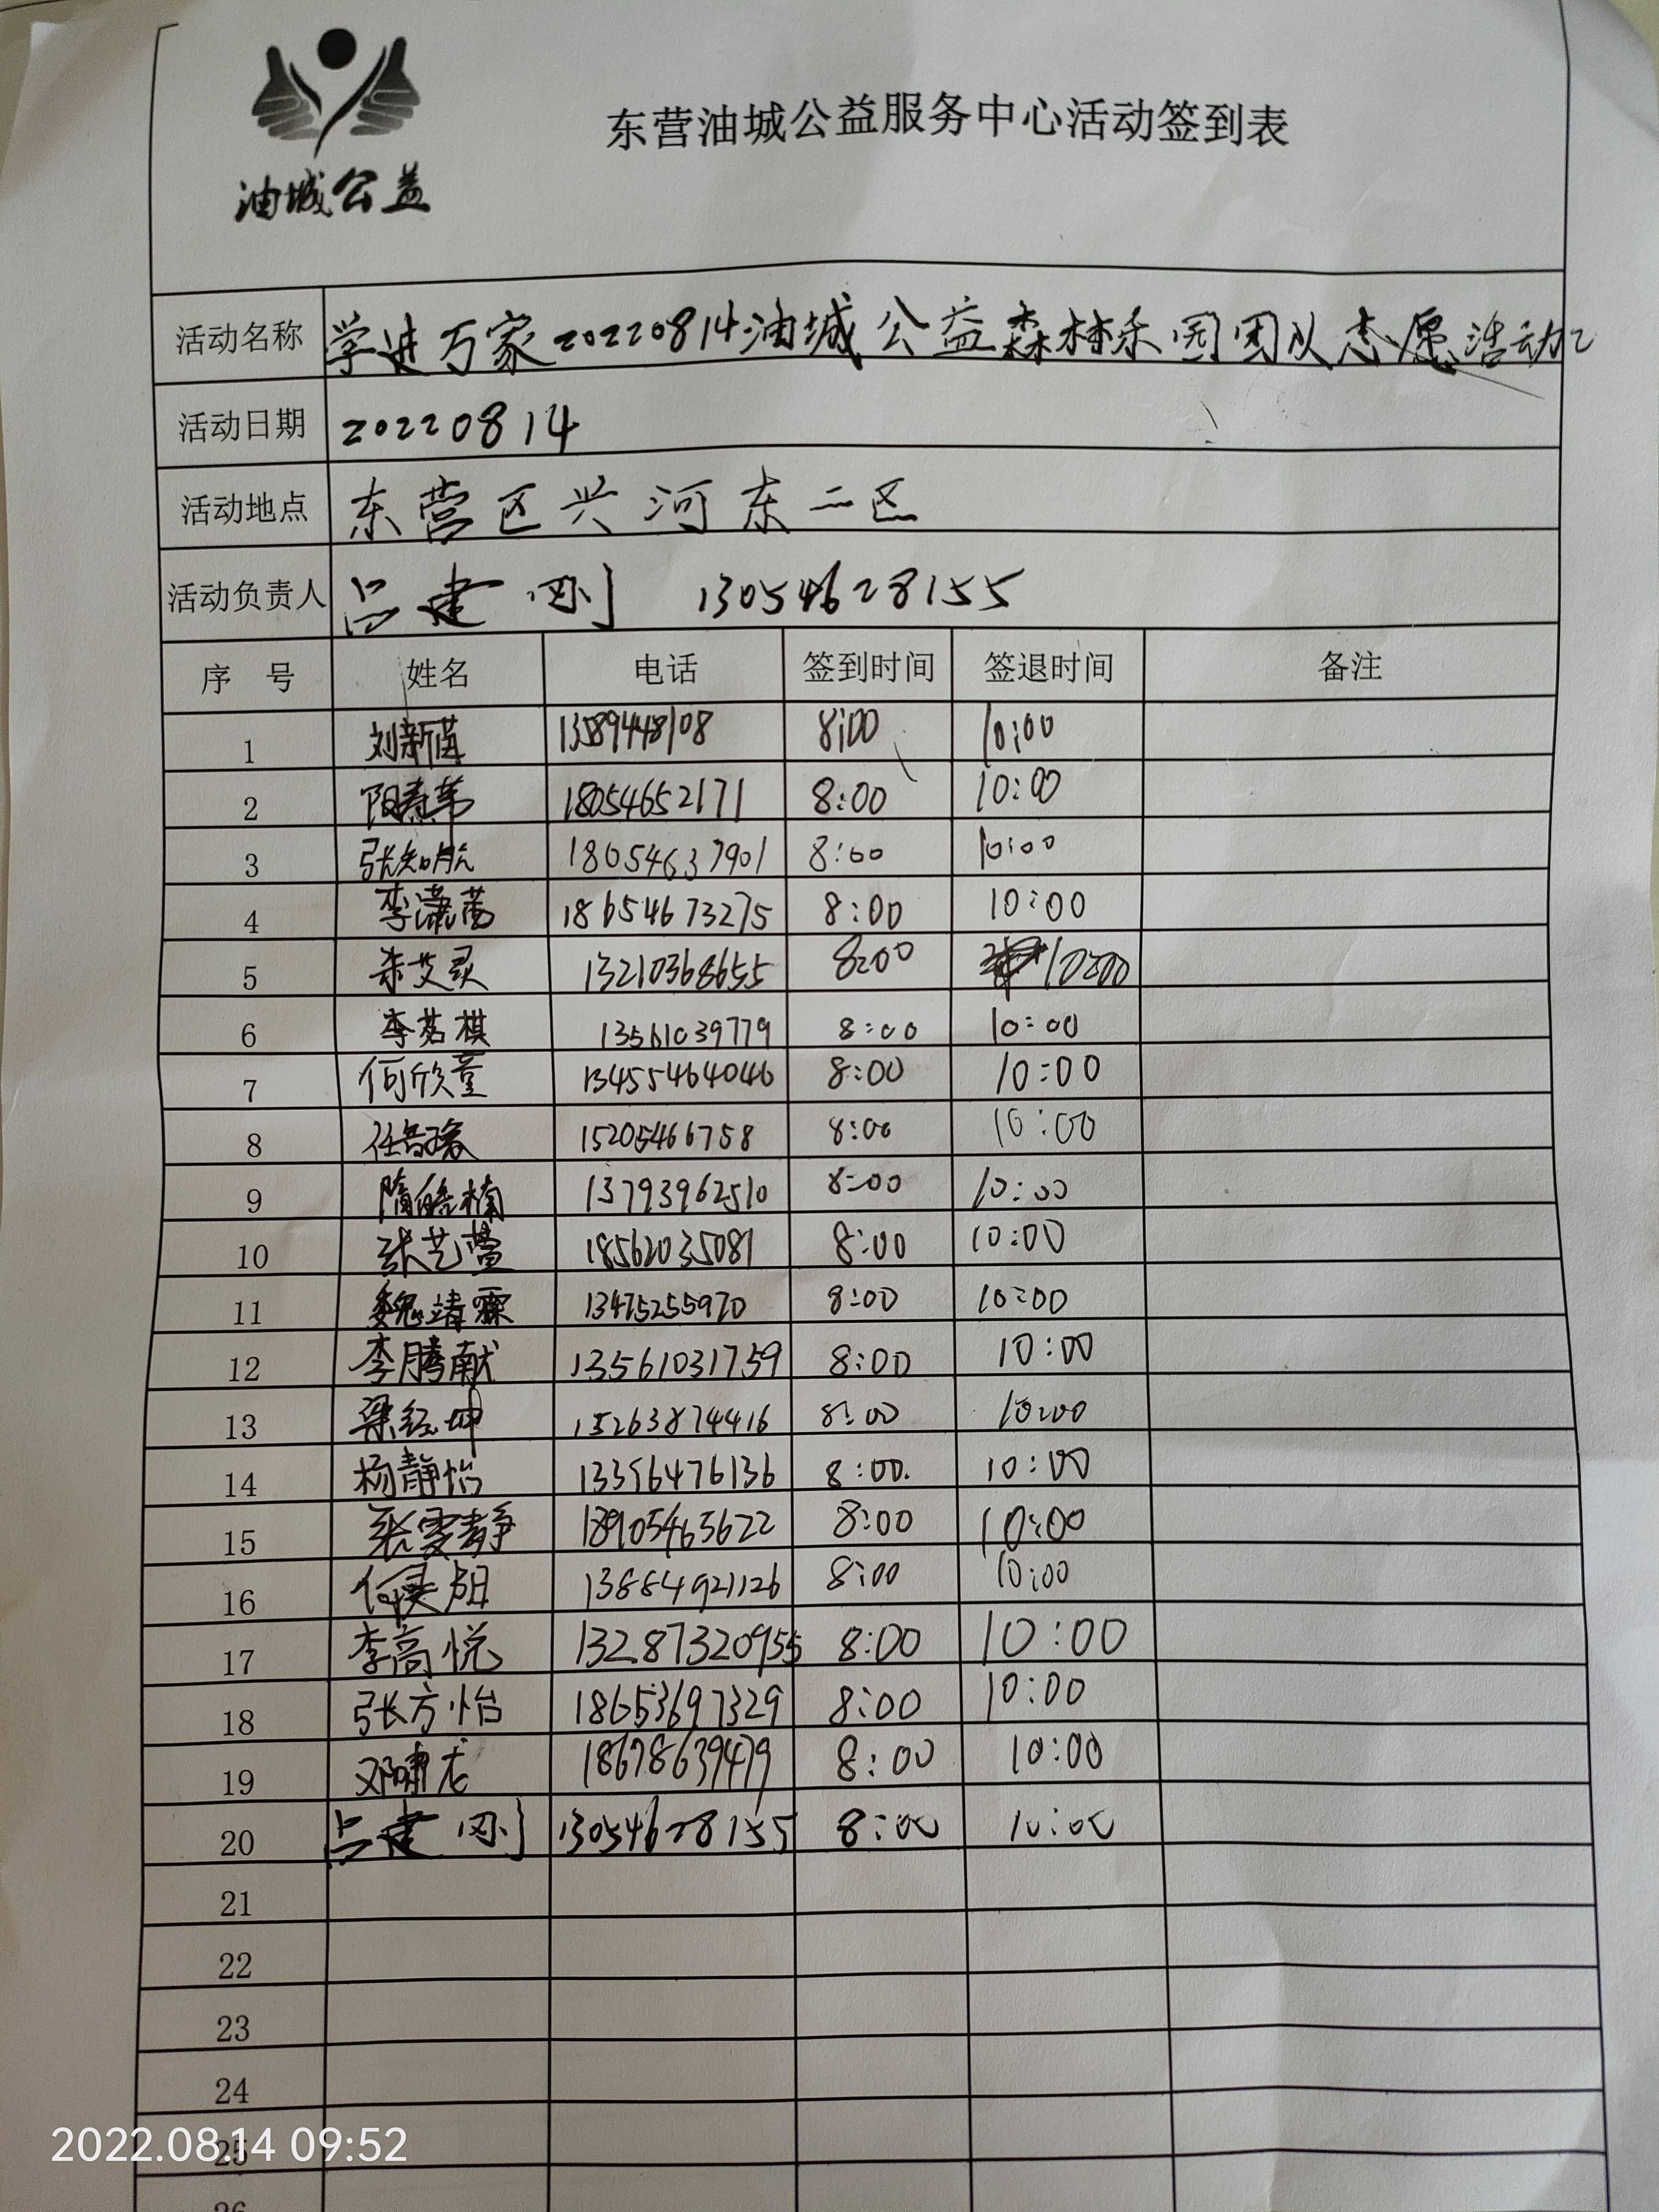 油城公益
东营油城公益服务中心活动签到表
活动名称 学进万家20220814油城公益森林乐园团队志愿活动2
活动日期 20220814
活动地点 东营区兴河东二区
活动负责人 吕建刚 13054628155
序号 姓名 电话 签到时间 签退时间 备注
1 13589448108 8:00 10:00
2 18054652171 8:00 10:00
3 张知航 18054637901 8:00 10:00
4 李潇菡 18654673275 8:00 10:00
5 朱艾灵 13210368655 8:00 10:00
6 李茗棋 13561039779 8:00 10:00
7 何欣童 13455464046 8:00 10:00
8 15205466758 8:00 10:00
9 隋皓楠 13793962510 8:00 10:00
10 张艺萱 18562035081 8:00 10:00
11 魏靖霖 13475255970 8:00 10:00
12 李腾献 13561031759 8:00 10:00
13 梁经坤 15263874416 8:00 10:00
14 杨静怡 13356476136 8:00. 10:00
15 张雯静 18905465622 8:00 10:00
16 13884921126 8:00 10:00
17 李高悦 13287320955 8:00 10:00
18 张方怡 18653697329 8:00 10:00
19 邓啸龙 18678639479 8:00 10:00
20 吕建刚 13054628155 8:00 10:00
21
22
23
24
25
26
2022.08.14 09:52